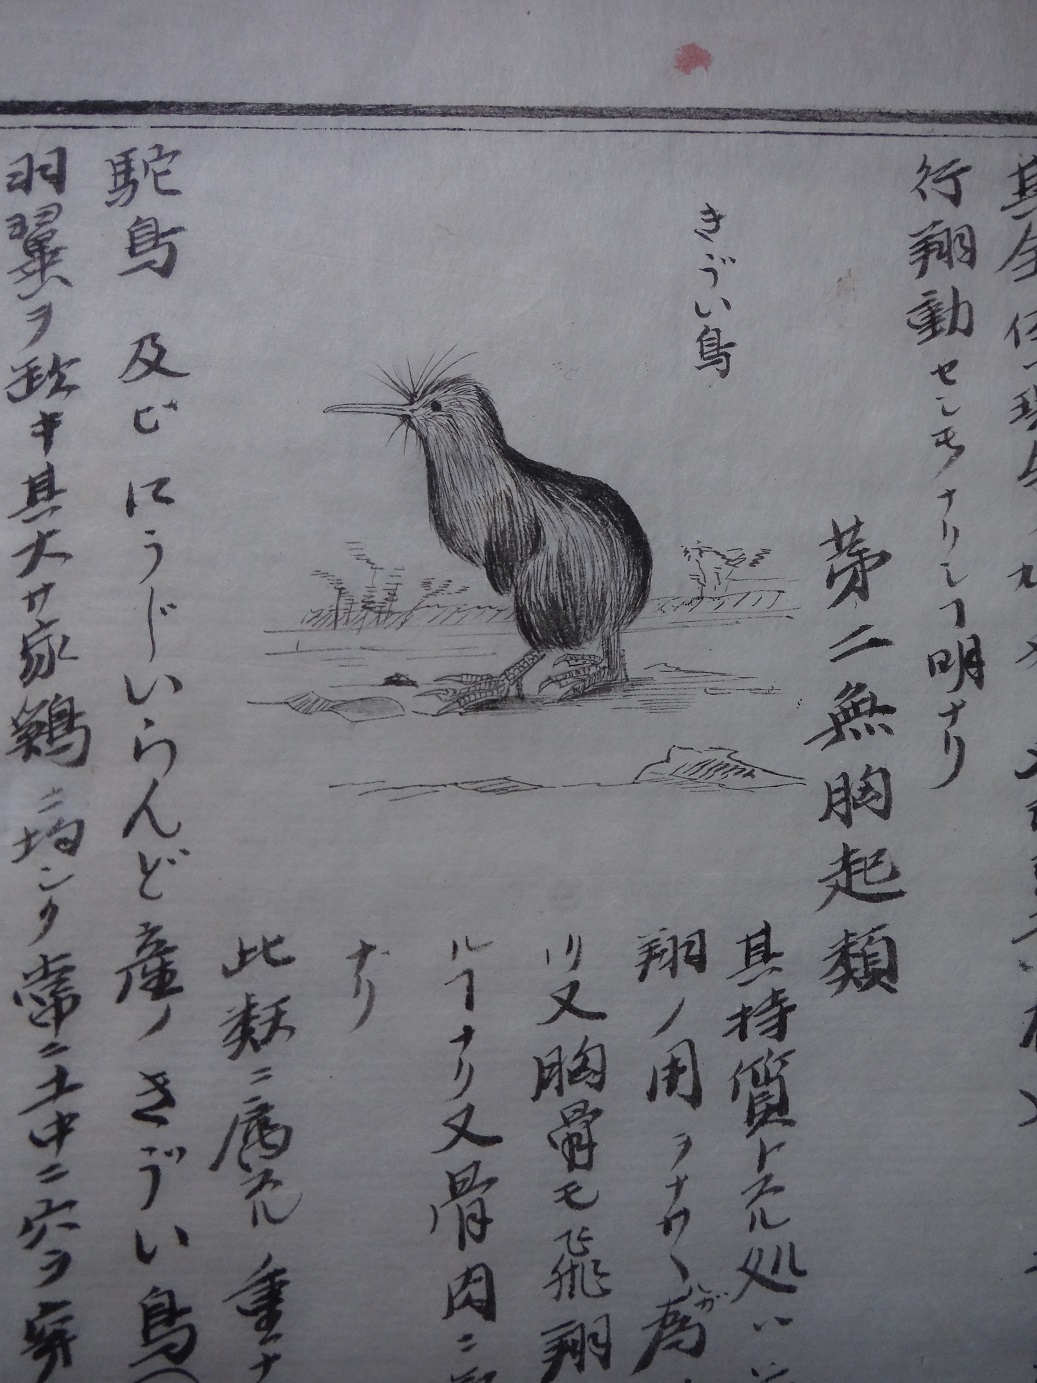 行翔動セシモノナリシヿ明ナリ
きゔい鳥
第二無胸起類
其持質トスル処ハ
翔ノ用ヲナサヽ
リ又胸骨モ飛翔
ルヿナリ又骨肉ニ
ナリ
此類ニ属スル重ナ
駝鳥 及ビにうじいらんど産ノきゔい鳥
羽翼ヲ欠キ其大サ家鶏ニ均シク常ニ土中ニ穴ヲ穿